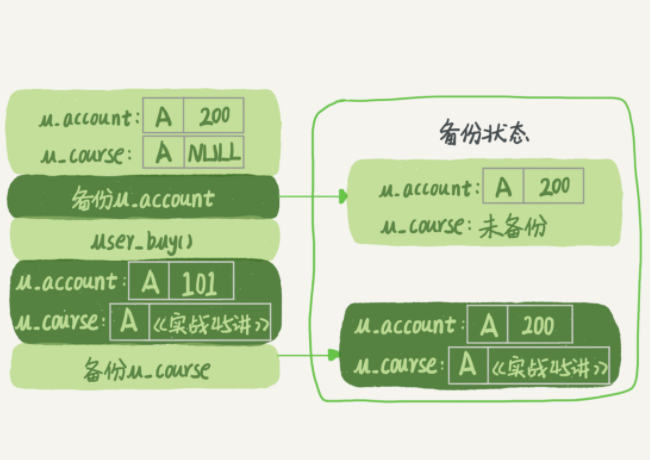 u_account: A 200
u_course: A NULL
备份u_account
user_buy()
u_account: A 101
u_course: A 《实战45讲》
备份u_course
备份状态
u_account: A 200
u_course: 未备份
u_account: A 200
u_course: A 《实战45讲》